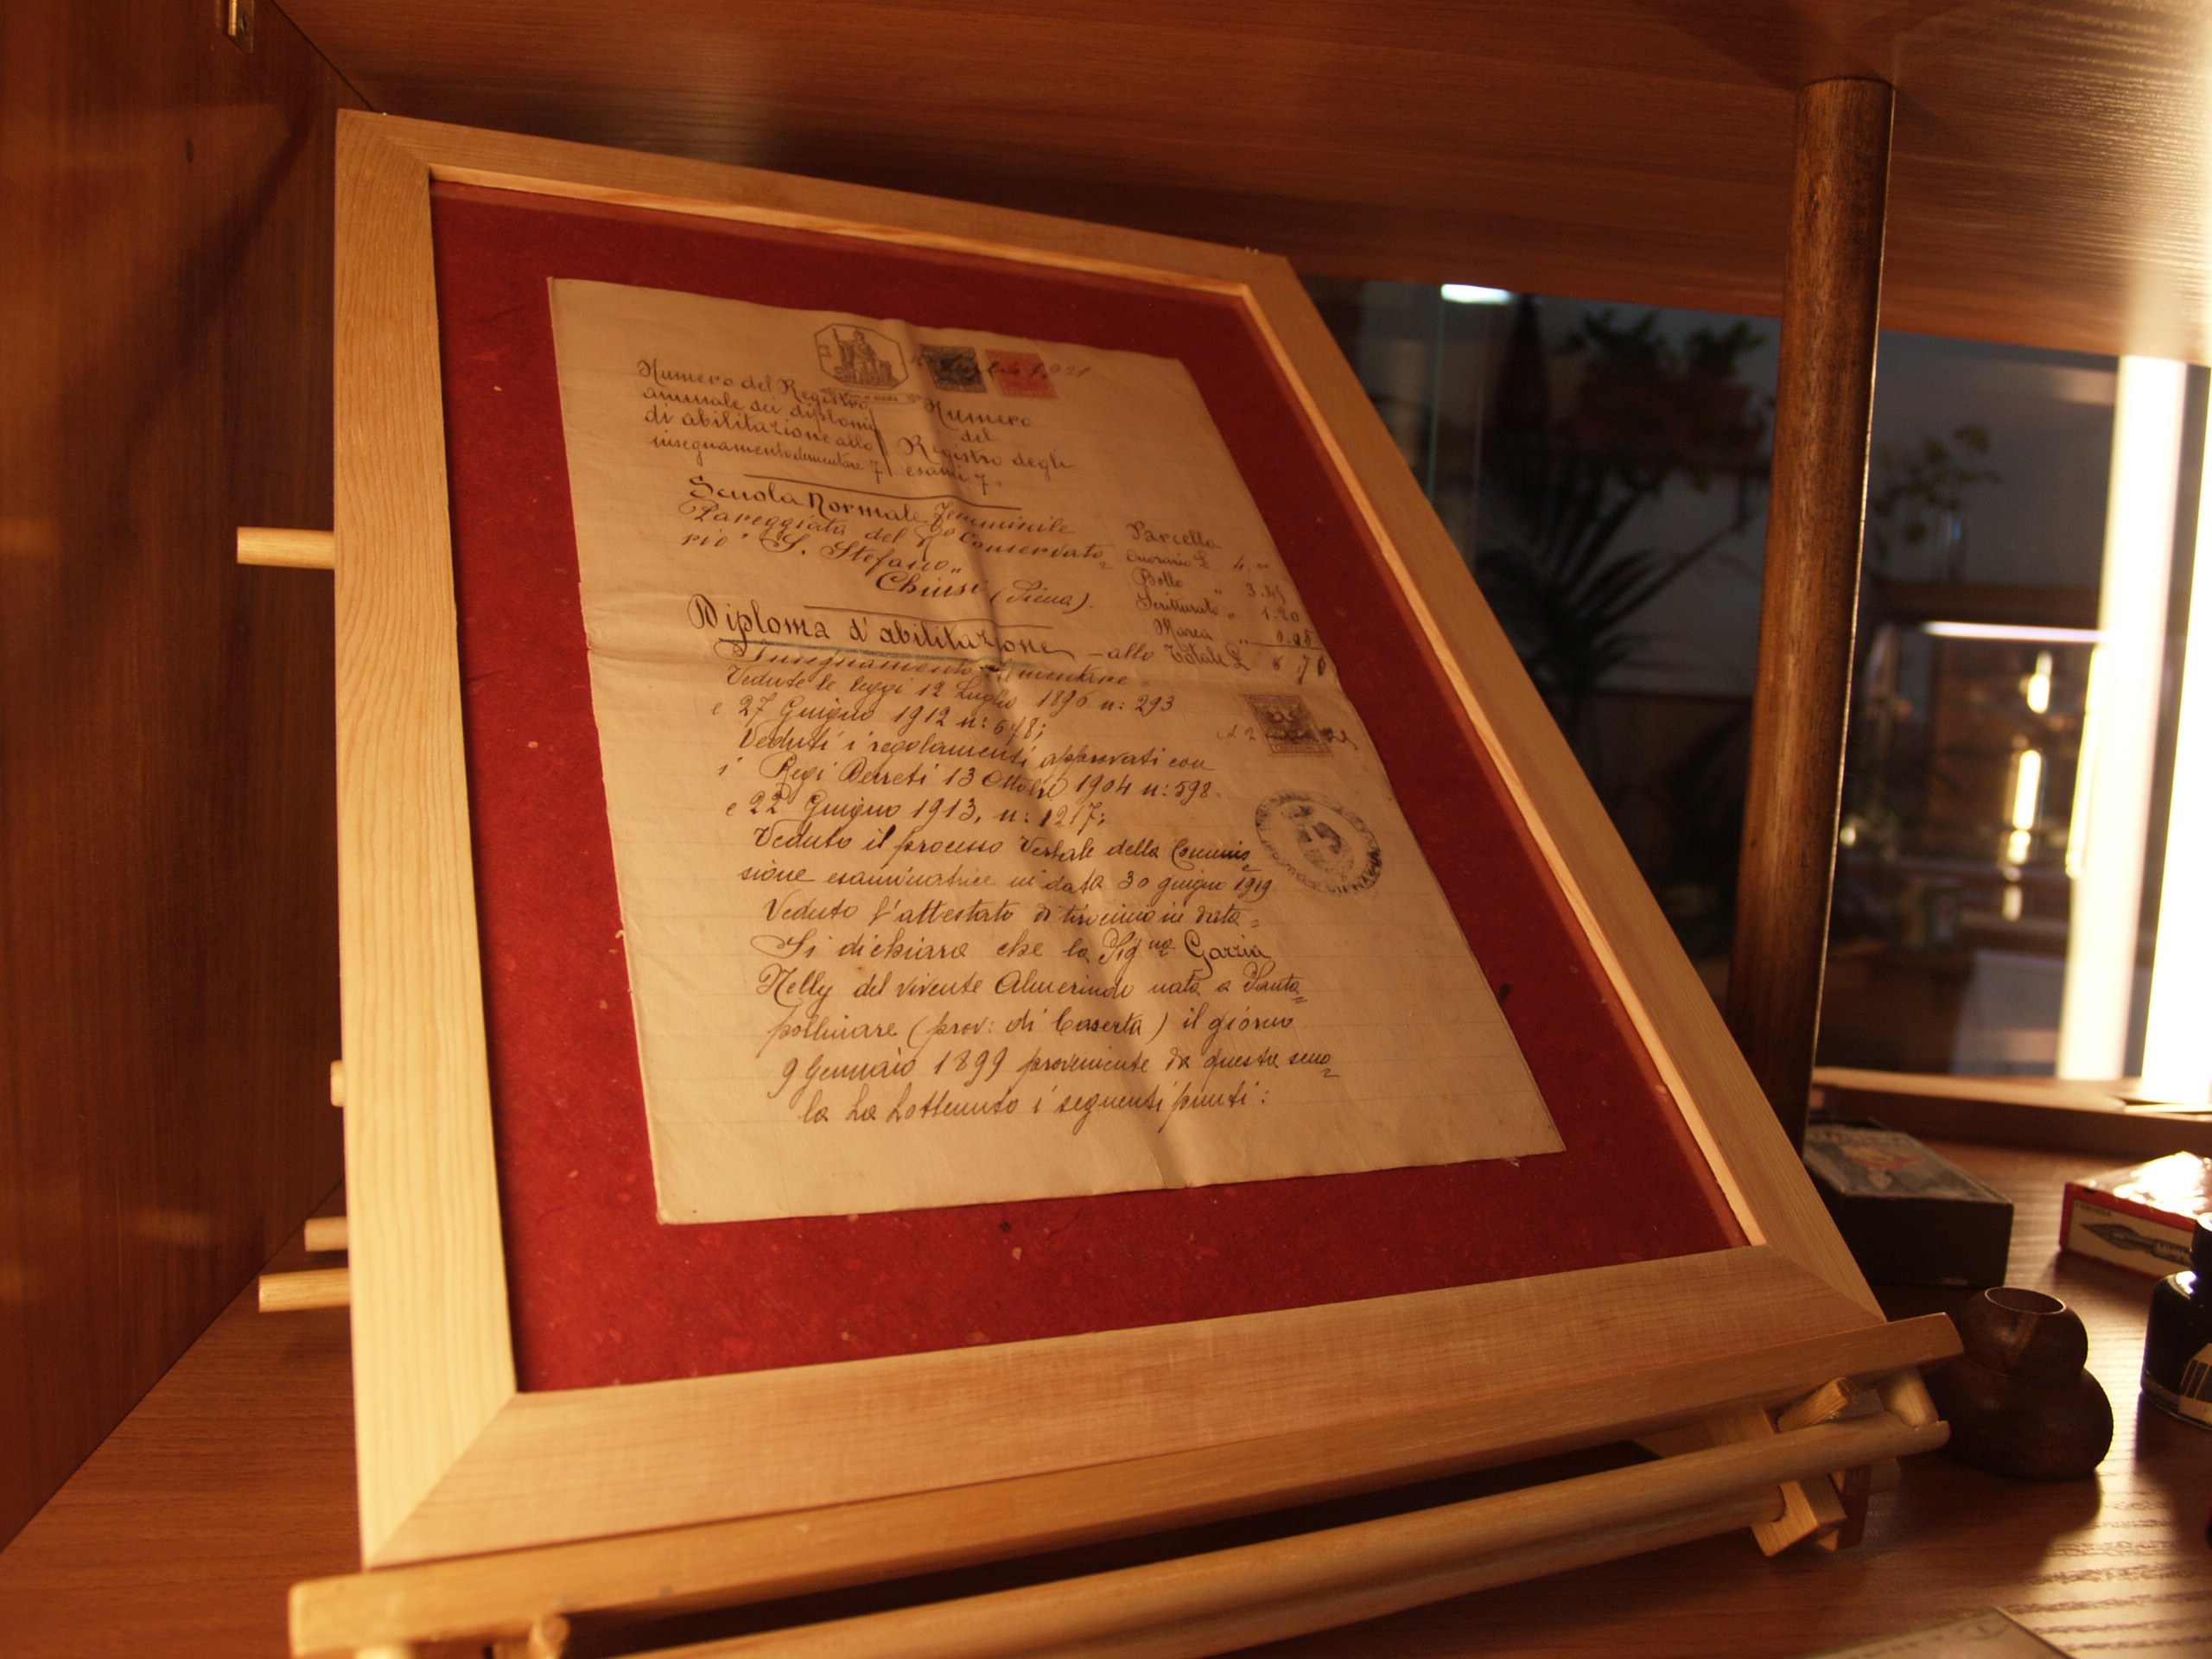 Numero del Registro
annuale dei diplomi
di abilitazione allo
insegnamento elementare 7
Numero
del
Registro degli
esami 7.
1921
Scuola Normale Femminile
Pareggiata del Ro Conservato=
rio "S. Stefano"
Chiusi (Siena).
Parcella
Onorario £ 4. "
Bollo " 3.45
Scritturato " 1.20
Marca " 0.05
Totale £ 8.70
Diploma d'abilitazione - allo
Insegnamento elementare -
Vedute le leggi 12 Luglio 1896 n: 293
e 27 Giugno 1912 n: 678;
Veduti i regolamenti approvati con
i Regi Decreti 13 Ottobre 1904 n: 598
e 22 Giugno 1913, n: 1217;
Veduto il processo verbale della Commis=
sione esaminatrice in data 30 giugno 1919
Veduto l'attestato di tirocinio in data =
Si dichiara che la Signa Garzia
Nelly del vivente Almerindo nata a Santa=
pollinare (prov: di Caserta) il giorno
9 Gennaio 1899 proveniente da questa scuo=
la ha hottenuto i seguenti punti: